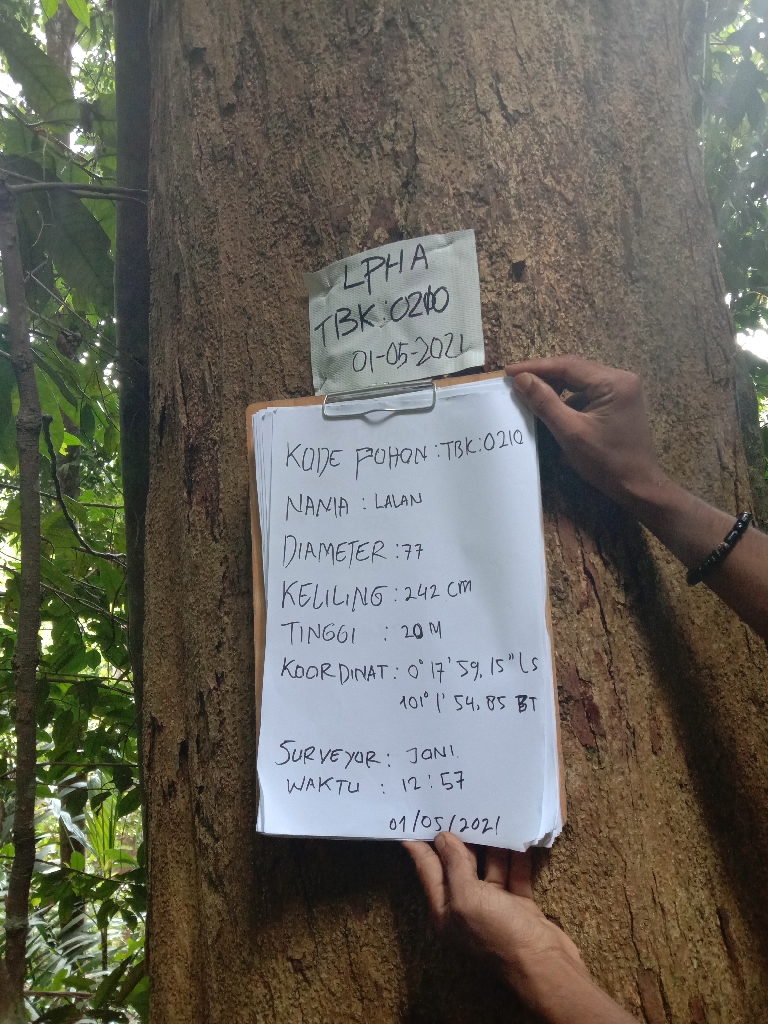 LPHA
TBK:0210
01-05-2021
KODE POHON : TBK:0210
NAMA : LALAN
DIAMETER : 77
KELILING : 242 CM
TINGGI : 20 M
KOORDINAT : 0° 17' 59,15" LS
101° 1' 54,85 BT
SURVEYOR : JONI.
WAKTU : 12:57
01/05/2021